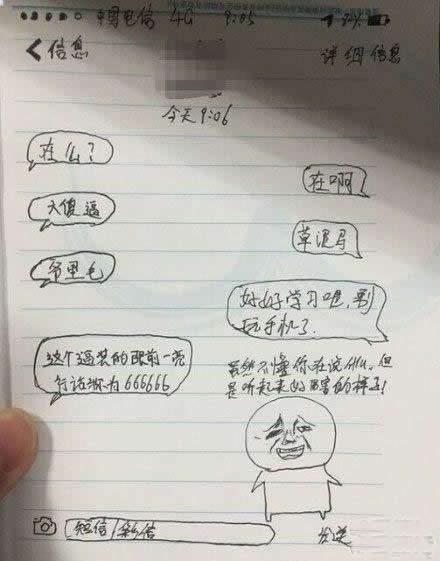 中国电信 4G 9:05
信息
详细信息
今天9:06
在么？
在啊
大傻逼
草泥马
吊里毛
好好学习吧，别
玩手机了.
这个逼装的眼前一亮
行话称为666666
虽然不懂你在说什么,但
是听起来好厉害的样子!
短信/彩信
发送